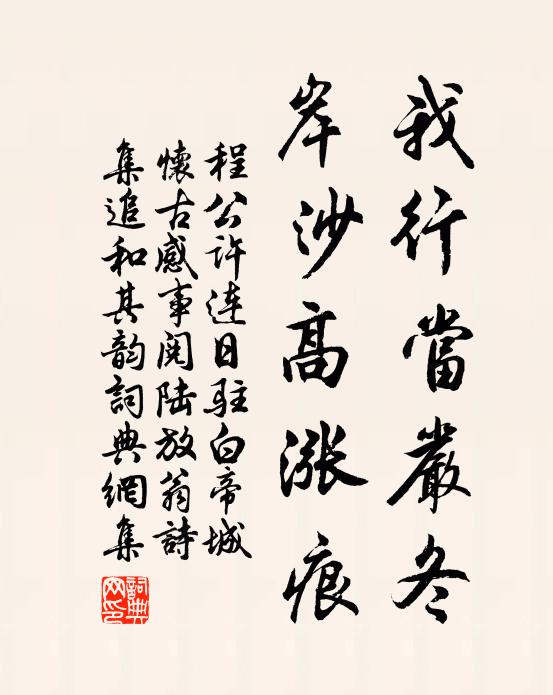 我行當嚴冬
岸沙高漲痕
程公許連日駐白帝城
懷古感事閱陸放翁詩
集追和其韵詞典網集
詞典
网印